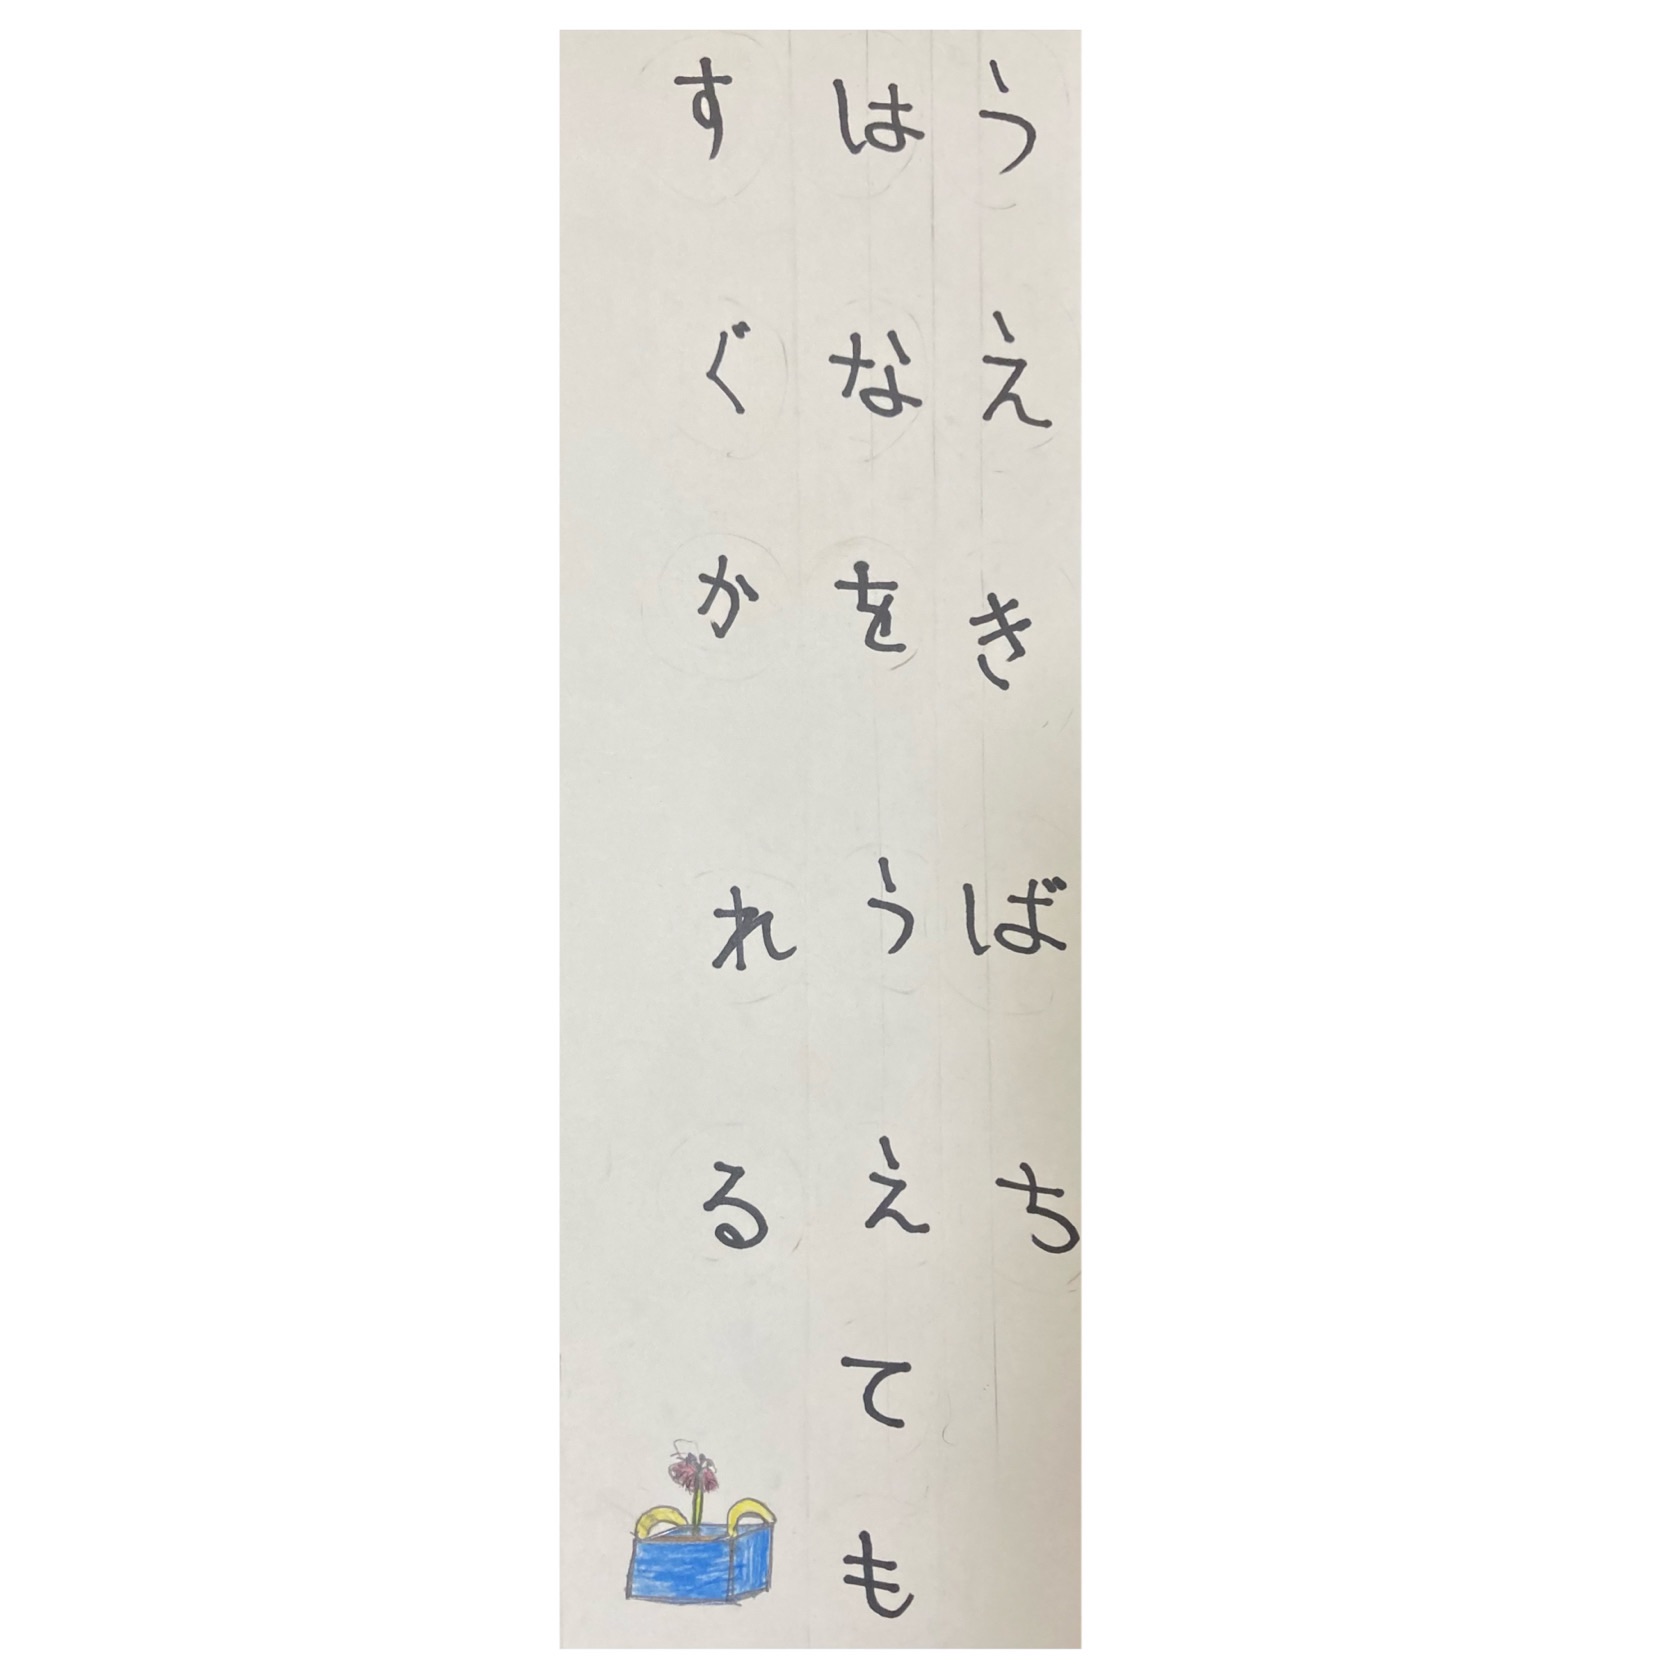 うえきばち
はなをうえても
すぐかれる